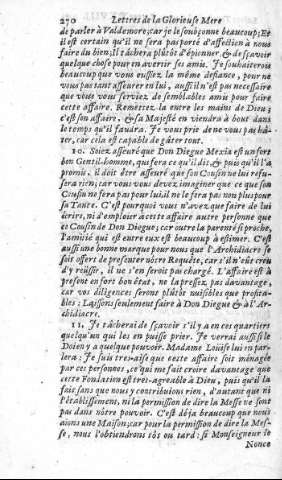 270 Lettres de la Glorieuse Mere
de parler à Valdemore; car je le soupçonne beaucoup; Et
il est certain qu'il ne sera pas porté d'affection à nous
faire du bien; Il tâchera plûtôt d'épionner, & de sçavoir
quelque chose pour en avertir ses amis. Je souhaiterois
beaucoup que vous eussiez la même défiance, pour ne
vous pas tant asseurer en lui, aussi n'est pas necessaire
que vous vous serviez de semblables amis pour faire
cette affaire. Remettez-la entre les mains de Dieu;
c'est son affaire, & sa Majesté en viendra à bout dans
le temps qu'il faudra. Je vous prie de ne vous pas hâ-
ter, car cela est capable de gâter tout.
10. Soiez asseuré que Don Diegue Mexia est un fort
bon Gentil-homme, qui fera ce qu'il dit, & puis qu'il l'a
promis, il doit être asseuré que son Cousin ne lui refu-
sera rien; car vous vous devez imaginer que ce que son
Cousin ne fera pas pour lui, il ne le fera pas non plus pour
sa Tante. C'est pourquoi vous n'avez que faire de lui
écrire, ni d'emploier à cette affaire autre personne que
ce Cousin de Don Diegue; car outre la parenté si proche,
l'amitié qui est entre eux est beaucoup à estimer. C'est
aussi une bonne marque pour nous que l'Archidiacre se
soit offert de presenter nôtre Requête, car s'il n'eût crû
d'y réüssir, il ne s'en seroit pas chargé. L'affaire est à
present en fort bon état, ne la pressez pas davantage,
car vos diligences seront plûtôt nuisibles que profita-
bles: Laissons seulement faire à Don Diegue & à l'Ar-
chidiacre.
11. Je tâcherai de sçavoir s'il y a en ces quartiers
quelqu'un qui les en puisse prier. Je verrai aussi si le
Doien y a quelque pouvoir. Madame Loüise lui en par-
lera: Je suis tres-aise que cette affaire soit ménagée
par ces personnes, ce qui me fait croire davantage que
cette Fondation est tres-agreable à Dieu, puis qu'il la
fait, sans que nous y contribuions rien, d'autant que ni
l'établissement, ni la permission de dire la Messe ne sont
pas dans nôtre pouvoir. C'est déja beaucoup que nous
aions une Maison; car pour la permission de dire la Mes-
se, nous l'obtiendrons tôt ou tard: si Monseigneur le
Nonce